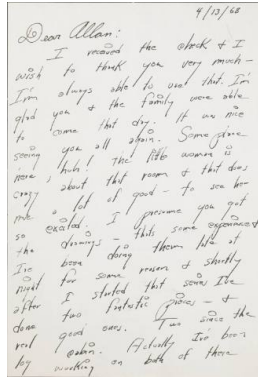 4/13/68
Dear Allan:
I received the check & I
wish to thank you very much -
I'm always able to use that. I'm
glad you & the family were able
to come that day. It was nice
seeing you all again. Some place
here, huh! The little woman is
crazy about this room & that does
me a lot of good - to see her
so excited. I presume you got
the drawings - that's some experience
I've been doing them late at
night for some reason & shortly
after I started that series I've
done two fantastic pieces - &
real good ones. Two since the
Actually I've been
by working on both of these